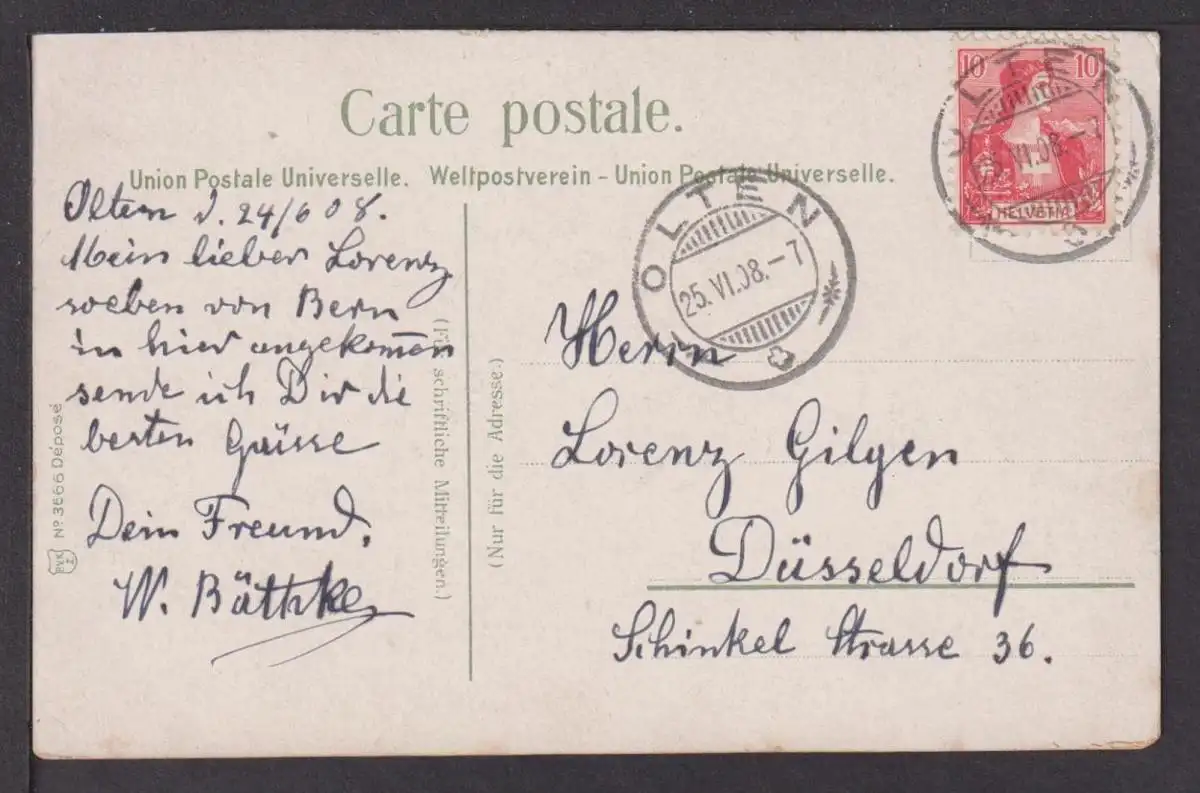 Carte postale.
Union Postale Universelle. Weltpostverein - Union Postale Universelle.
Olten d. 24/6 08.
Mein lieber Lorenz
soeben von Bern
in hier angekom̅en
sende ich Dir die
besten Grüsse
Dein Freund.
W. Bäthke
(Für schriftliche Mitteilungen.)
(Nur für die Adresse.)
Nº 3666 Déposé
10 10
HELVETIA
OLTEN
25.VI.08.-7
OLTEN
25.VI.08.-7
Herrn
Lorenz Gilgen
Düsseldorf
Schinkel Strasse 36.